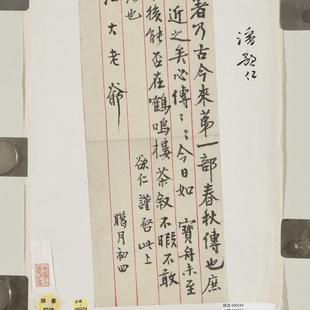 潘欲仁
者乃古今來第一部春秋傳也庶
近之矣心傳〻〻今日如 寶舟未至
後能否在鶴鳴樓茶敘不暇不敢
也
欲仁謹啓此上
大老爺
臘月初四